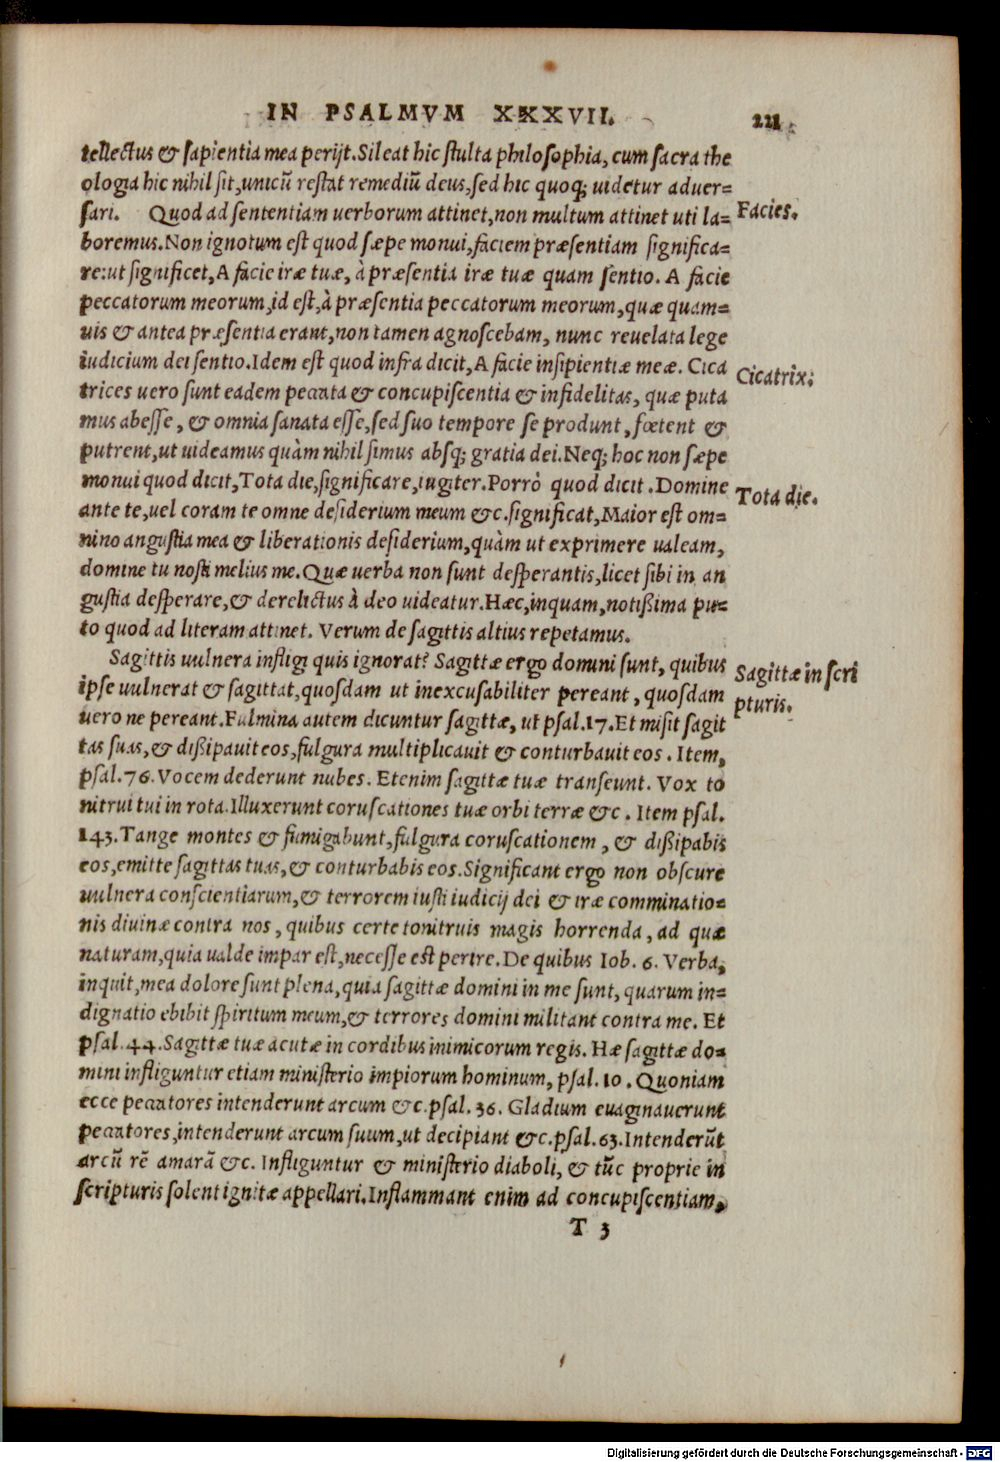 IN PSALMVM XXXVII. 221
tellectus & sapientia mea perijt. Sileat hic stulta philosophia, cum sacra the
ologia hic nihil sit, unicũ restat remediũ deus, sed hic quoq; uidetur aduer=
sari. Quod ad sententiam uerborum attinet, non multum attinet uti la=
Facies.
boremus. Non ignotum est quod sæpe monui, faciem præsentiam significa=
re: ut significet, A facie iræ tuæ, à præsentia iræ tuæ quam sentio. A facie
peccatorum meorum, id est, à præsentia peccatorum meorum, quæ quam=
uis & antea præsentia erant, non tamen agnoscebam, nunc reuelata lege
iudicium dei sentio. Idem est quod infra dicit, A facie insipientiæ meæ. Cica
Cicatrix:
trices uero sunt eadem peccata & concupiscentia & infidelitas, quæ puta
mus abesse, & omnia sanata esse, sed suo tempore se produnt, fœtent &
putrent, ut uideamus quàm nihil simus absq; gratia dei. Neq; hoc non sæpe
monui quod dicit, Tota die, significare, iugiter. Porrò quod dicit. Domine
Tota die.
ante te, uel coram te omne desiderium meum &c. significat, Maior est om=
nino angustia mea & liberationis desiderium, quàm ut exprimere ualeam,
domine tu nosti melius me. Quæ uerba non sunt desperantis, licet sibi in an
gustia desperare, & derelictus à deo uideatur. Hæc, inquam, notißima pu=
to quod ad literam attinet. Verum de sagittis altius repetamus.
Sagittis uulnera infligi quis ignorat? Sagittæ ergo domini sunt, quibus
Sagittæ in scri
ipse uulnerat & sagittat, quosdam ut inexcusabiliter pereant, quosdam
pturis.
uero ne pereant. Fulmina autem dicuntur sagittæ, ut psal. 17. Et misit sagit
tas suas, & dißipauit eos, fulgura multiplicauit & conturbauit eos. Item,
psal. 76. Vocem dederunt nubes. Etenim sagittæ tuæ transeunt. Vox to
nitrui tui in rota. Illuxerunt coruscationes tuæ orbi terræ &c. Item psal.
143. Tange montes & fumigabunt, fulgura coruscationem, & dißipabis
eos, emitte sagittas tuas, & conturbabis eos. Significant ergo non obscure
uulnera conscientiarum, & terrorem iusti iudicij dei & iræ comminatio=
nis diuinæ contra nos, quibus certe tonitruis magis horrenda, ad quæ
naturam, quia ualde impar est, necesse est perire. De quibus Iob. 6. Verba,
inquit, mea dolore sunt plena, quia sagittæ domini in me sunt, quarum in=
dignatio ebibit spiritum meum, & terrores domini militant contra me. Et
psal. 44. Sagittæ tuæ acutæ in cordibus inimicorum regis. Hæ sagittæ do=
mini infliguntur etiam ministerio impiorum hominum, psal. 10. Quoniam
ecce peccatores intenderunt arcum &c. psal. 36. Gladium euaginauerunt
peccatores, intenderunt arcum suum, ut decipiant &c. psal. 63. Intenderũt
arcũ rẽ amarã &c. Infliguntur & ministerio diaboli, & tũc proprie in
scripturis solent ignitæ appellari. Inflammant enim ad concupiscentiam,
T 3
Digitalisierung gefördert durch die Deutsche Forschungsgemeinschaft - DFG